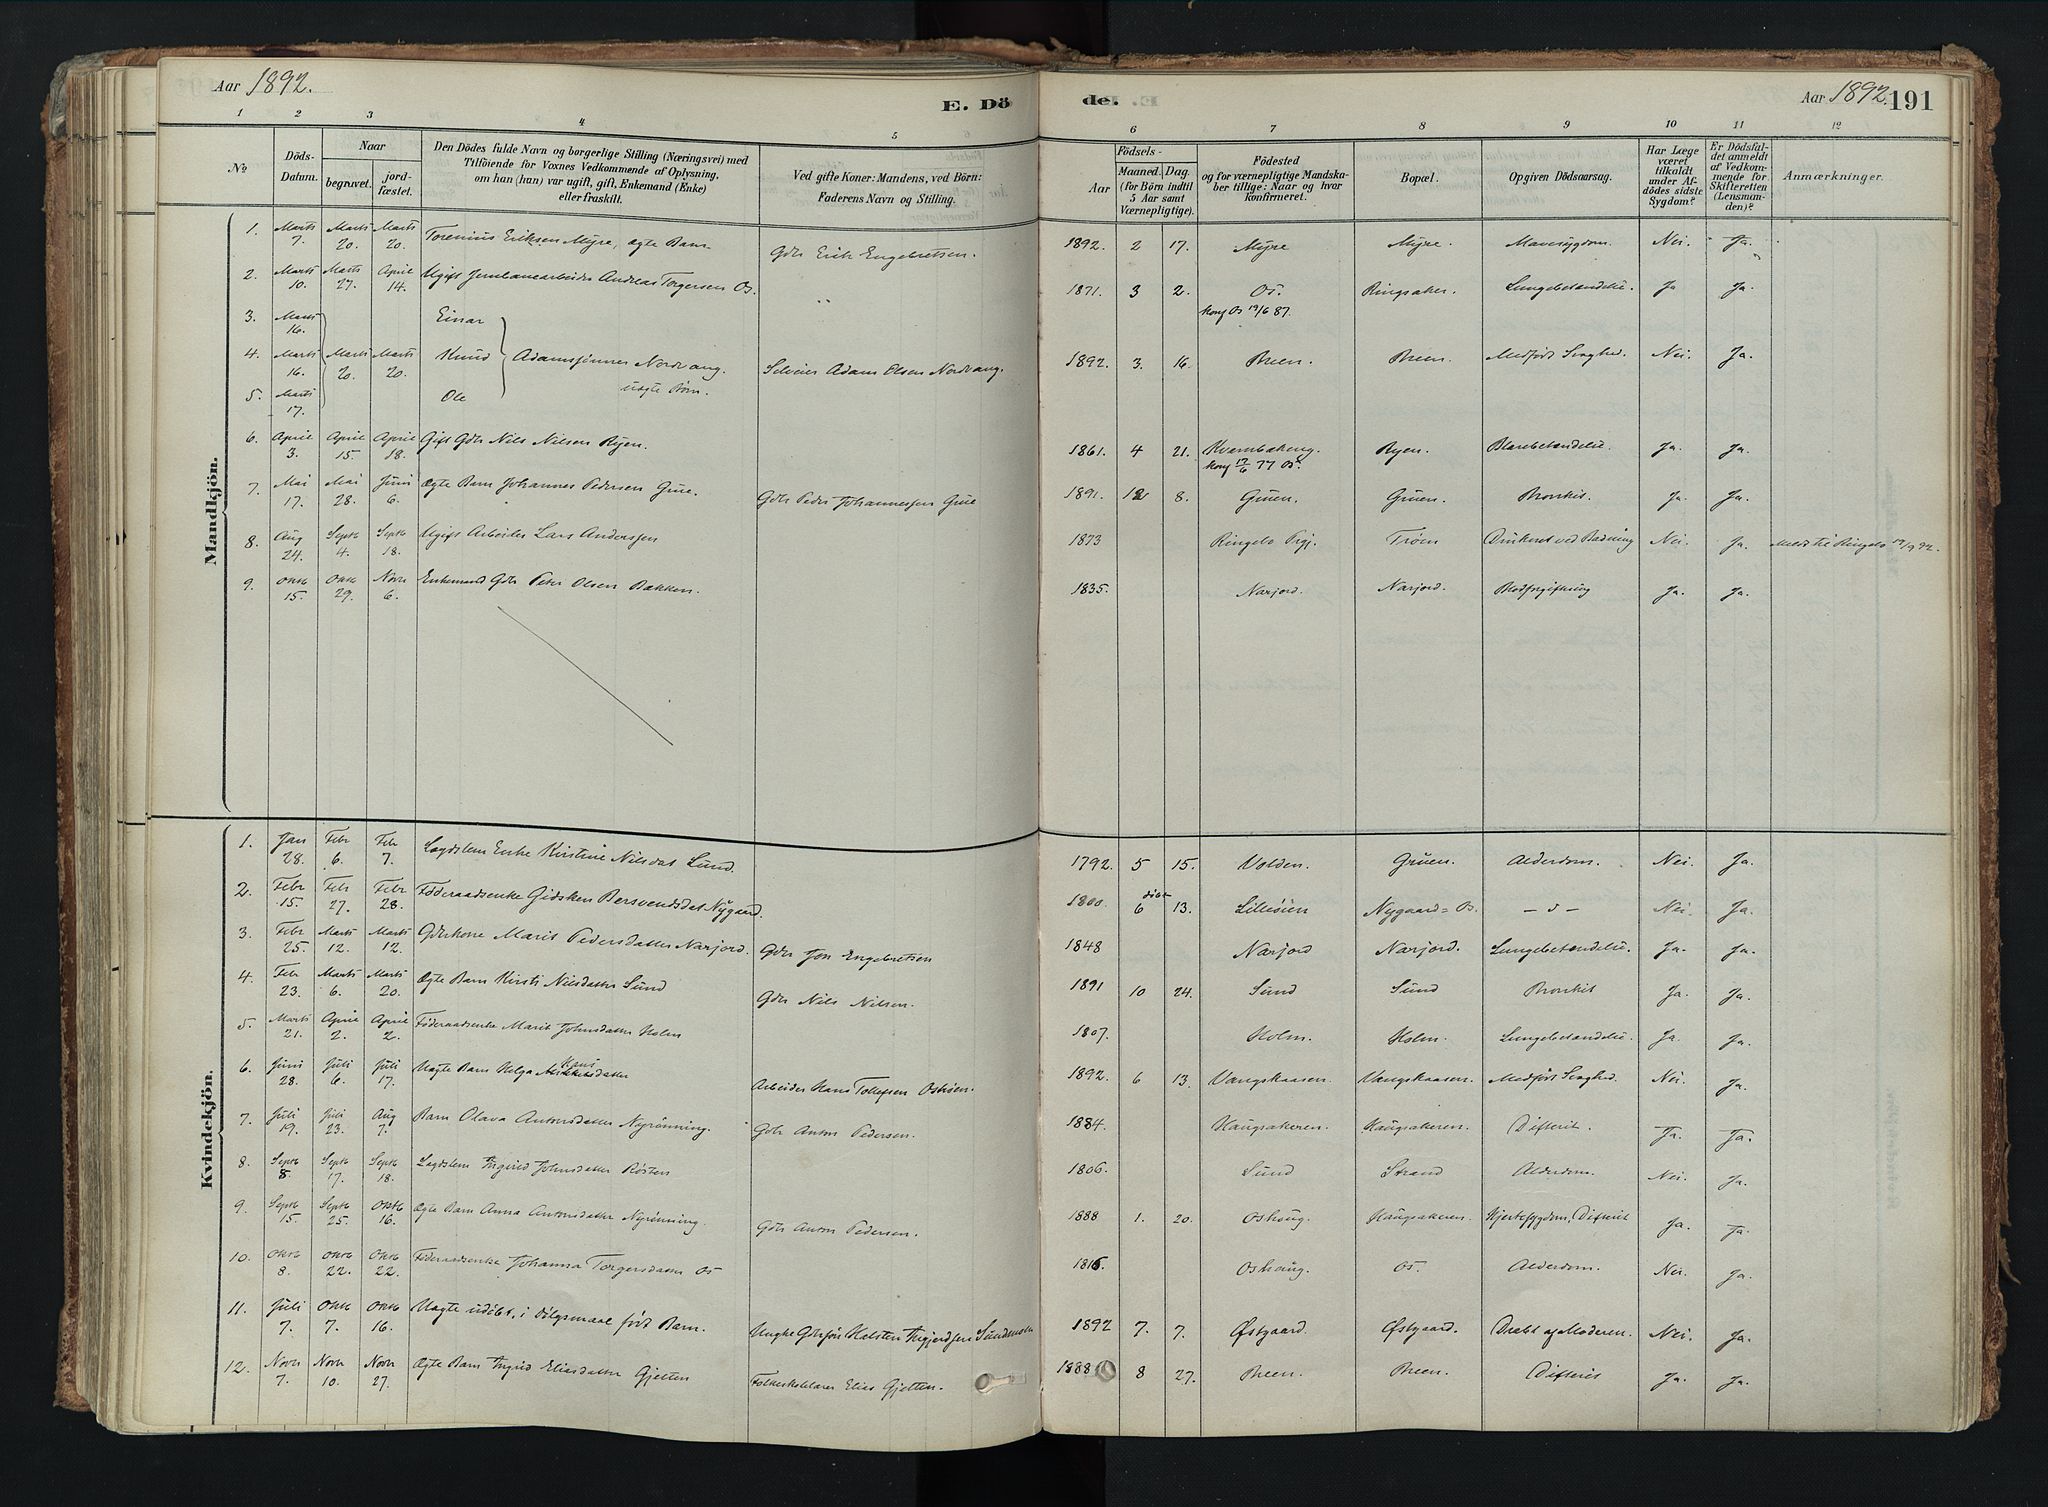 Aar 1892.
E. Dö
de.
Aar 1892. 191
1 2 3 4 5 6 7 8 9 10 11 12
No
Döds-Datum.
Naar
begravet.
jord-fæstet.
Den Dödes fulde Navn og borgerlige Stilling (Næringsvei) med
Tilföiende for Voxnes Vedkommende af Oplysning,
om han (hun) var ugift, gift, Enkemand (Enke)
eller fraskilt.
Ved gifte Koner: Mandens, ved Börn:
Faderens Navn og Stilling.
Födsels-
Aar
Maaned. Dag.
(for Börn indtil
5 Aar samt
Værnepligtige).
Födested
og for værnepligtige Mandska-
ber tillige: Naar og hvor
konfirmeret.
Bopæl.
Opgiven Dödsaarsag.
Har Læge
været
tilkaldt
under Af-
dödes sidste
Sygdom?
Er Dödsfal-
det anmeldt
af Vedkom-
mende for
Skifteretten
(Lensman-
den)?
Anmærkninger.
Mandkjön.
1. Marts 7. Marts 20. Marts 20. Torenius Eriksen Myre, ægte Barn Gdbr Erik Engebretsen. 1892. 2 17. Myre Myre. Mavesygdom. Nei. Ja.
2. Marts 10. Marts 27. April 14. Ugift Jernbanearbeider Andreas Torgersen Os. " 1871. 3 2. Os. konf Os 19/6 87. Ringsaker. Lungebetændelse. Ja Ja.
3. Marts 16. Einar
4. Marts 16. Marts 20. Marts 20. Knud Adamsønner Nordvang. uægte Børn. Selveier Adam Olsen Nordvang. 1892. 3. 16. Breen. Breen. Medfødt Svaghed. Nei. Ja.
5. Marts 17. Ole
6. April 3. April 15. April 18. Gift Gdbr Nils Nilsen Ryen. 1861. 4 21. Kværnbakeng. konf 17/6 77 Os. Ryen. Blærebetændelse. Ja. Ja.
7. Mai 17. Mai 28. Juni 6. Ægte Barn Johannes Pedersen Grue. Gdbr Peder Johannessen Grue 1891. 12 8. Gruen. Gruen. Bronkit. Ja. Ja.
8. Aug 24. Septb 4. Septb 18. Ugift Arbeider Lars Anderssen 1873 Ringebo Prgj. Trøen Druknet ved Badning Nei. Ja. Meldt til Ringebo 19/9 92.
9. Oktb 15. Oktb 29. Novr 6. Enkemand Gdbr Peter Olsen Bækken. 1835. Narjord. Narjord. Blodforgiftning Ja. Ja.
Kvindekjön.
1. Jan 28. Febr 6. Febr 7. Lægdslem Enke Kirstine Nilsdat Lund. 1792. 5 15. Volden. Gruen. Alderdom. Nei. Ja.
2. Febr 15. Febr 27. Febr 28. Føderaadsenke Gidsken Bersvendsdat Nygaard. 1800. døbt 6 13. Lillesøien Nygaard=Os. -"- Nei. Ja.
3. Febr 25. Marts 12. Marts 12. Gdbrkone Marit Pedersdatter Narjord. Gdbr Jon Engebretsen 1848 Narjord Narjord. Lungebetændelse. Ja. Ja.
4. Febr 23. Marts 6. Marts 20. Ægte Barn Kirsti Nilsdatter Sund Gdbr Nils Nilsen. 1891 10 24. Sund Sund Bronkit Ja. Ja.
5. Marts 21. April 2. April 2. Føderaadsenke Marit Johnsdatter Holm 1807. Holm. Holm. Lungebetændelse. Ja. Ja.
6. Juni 28. Juli 6. Juli 17. Uægte Barn Helga Hansdatter Arbeider Hans Tollefsen Østrøen. 1892. 6 13. Vangskaasen. Vangskaasen. Medfødt Svaghed. Nei. Ja.
7. Juli 19. Juli 23. Aug 7. Barn Olava Antonsdatter Nyrønning. Gdbr Anton Pedersen. 1884. Haugsakeren. Haugsakeren. Difterit. Ja. Ja.
8. Septb 8. Septb 17. Septb 18. Lægdslem Ingrid Johnsdatter Røsten 1806. Sund Strand Alderdom. Nei. Ja.
9. Septb 15. Septb 25. Oktb 16. Ægte Barn Anna Antonsdatter Nyrønning. Gdbr Anton Pedersen. 1888 1. 20. Oshaug. Haugsakeren. Hjertesygdom, Difterit Ja. Ja.
10. Oktb 8. Oktb 22. Oktb 22. Føderaadsenke Johanna Torgersdatter Os 1816. Oshaug. Os. Alderdom. Nei. Ja.
11. Juli 7. Oktb 7. Oktb 16. Uægte udøbt, i Dølgsmaal født Barn. Ungke Gbrsøn Halsten Ingjerdsen Sundmoen 1892 7. 7. Østgaard. Østgaard. Dræbt af Moderen. Nei. Ja.
12. Novr 7. Novr 10. Novr 27. Ægte Barn Ingrid Eliasdatter Gjelten Folkeskolelærer Elias Gjelten. 1888 8 27. Breen. Breen. Difterit Ja. Ja.